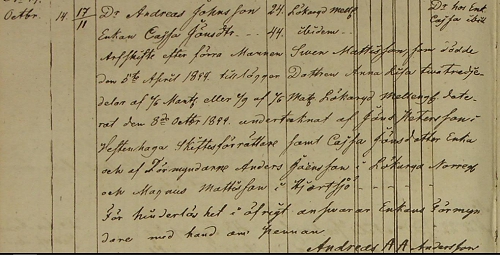 Octbr. 14. 17/11 Dr. Andreas Johnsson 24. Lökaryd Mellg. Dr. hos Enk.
Enkan Cajsa Jönsdtr. — 44. ibidem. Cajsa ibid.
Arfskifte efter förra Mannen Swen Mattisson, som dödde
den 5te April 1844. tillägger Dottren Anna Kajsa tvåtredje-
delar af 1/6 Mantz eller 1/9 af 1/6 Matz Lökaryd Mellangd. date-
rat den 8de Octbr 1844. undertecknat af Jöns Petersson i
Heftenhaga Skiftesförrättare samt Cajsa Jönsdotter Enka
och af Förmyndarne Anders Joënsson i Lökaryd Norreg.
och Magnus Mattisson i Hjertsjö
För hinderlös het i öfrigt answarar Enkans Förmyn
dare med hand om pennan
Andreas A A Andersson